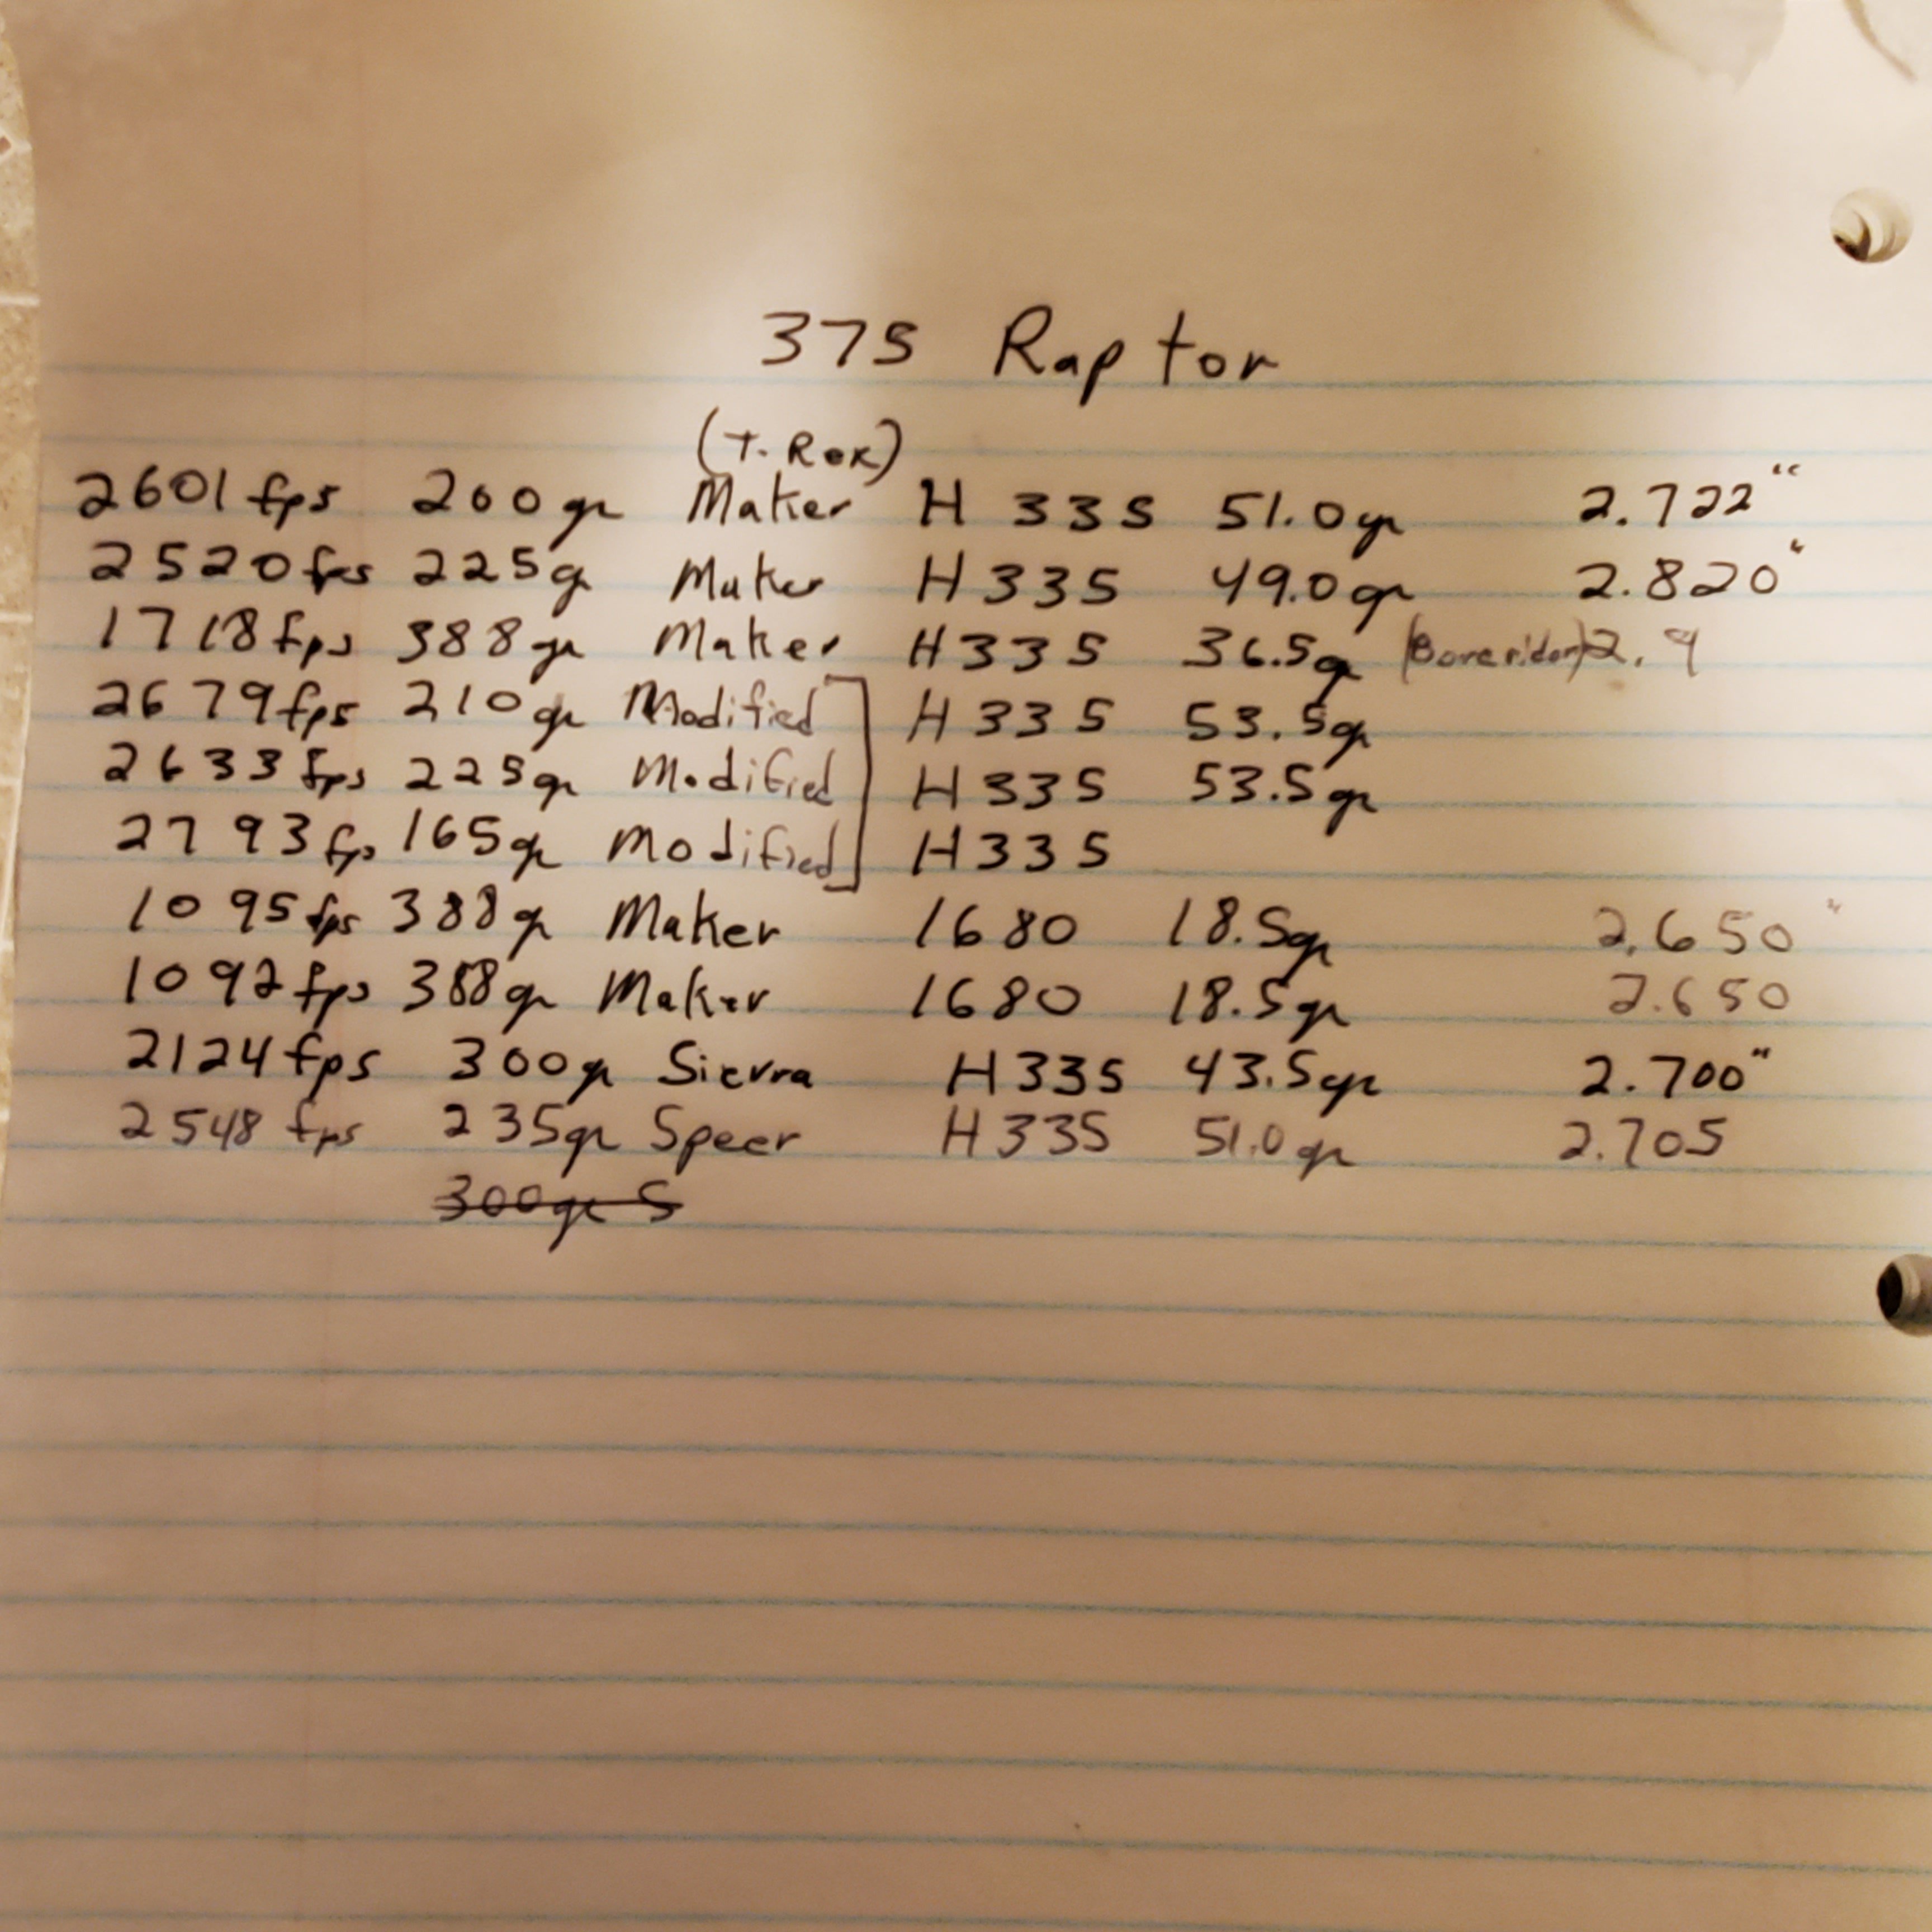 375 Raptor
(T. Rex)
2601 fps 200gr Maker H 335 51.0gr 2.722"
2520 fps 225gr Maker H335 49.0gr 2.820"
1718 fps 388gr Maker H335 36.5gr (Borerider) 2.9
2679 fps 210gr Modified H335 53.5gr
2633 fps 225gr Modified H335 53.5gr
2793 fps 165gr Modified H335
1095 fps 388gr Maker 1680 18.5gr 2.650"
1092 fps 388gr Maker 1680 18.5gr 2.650
2124 fps 300gr Sierra H335 43.5gr 2.700"
2548 fps 235gr Speer H335 51.0gr 2.705
300gr S